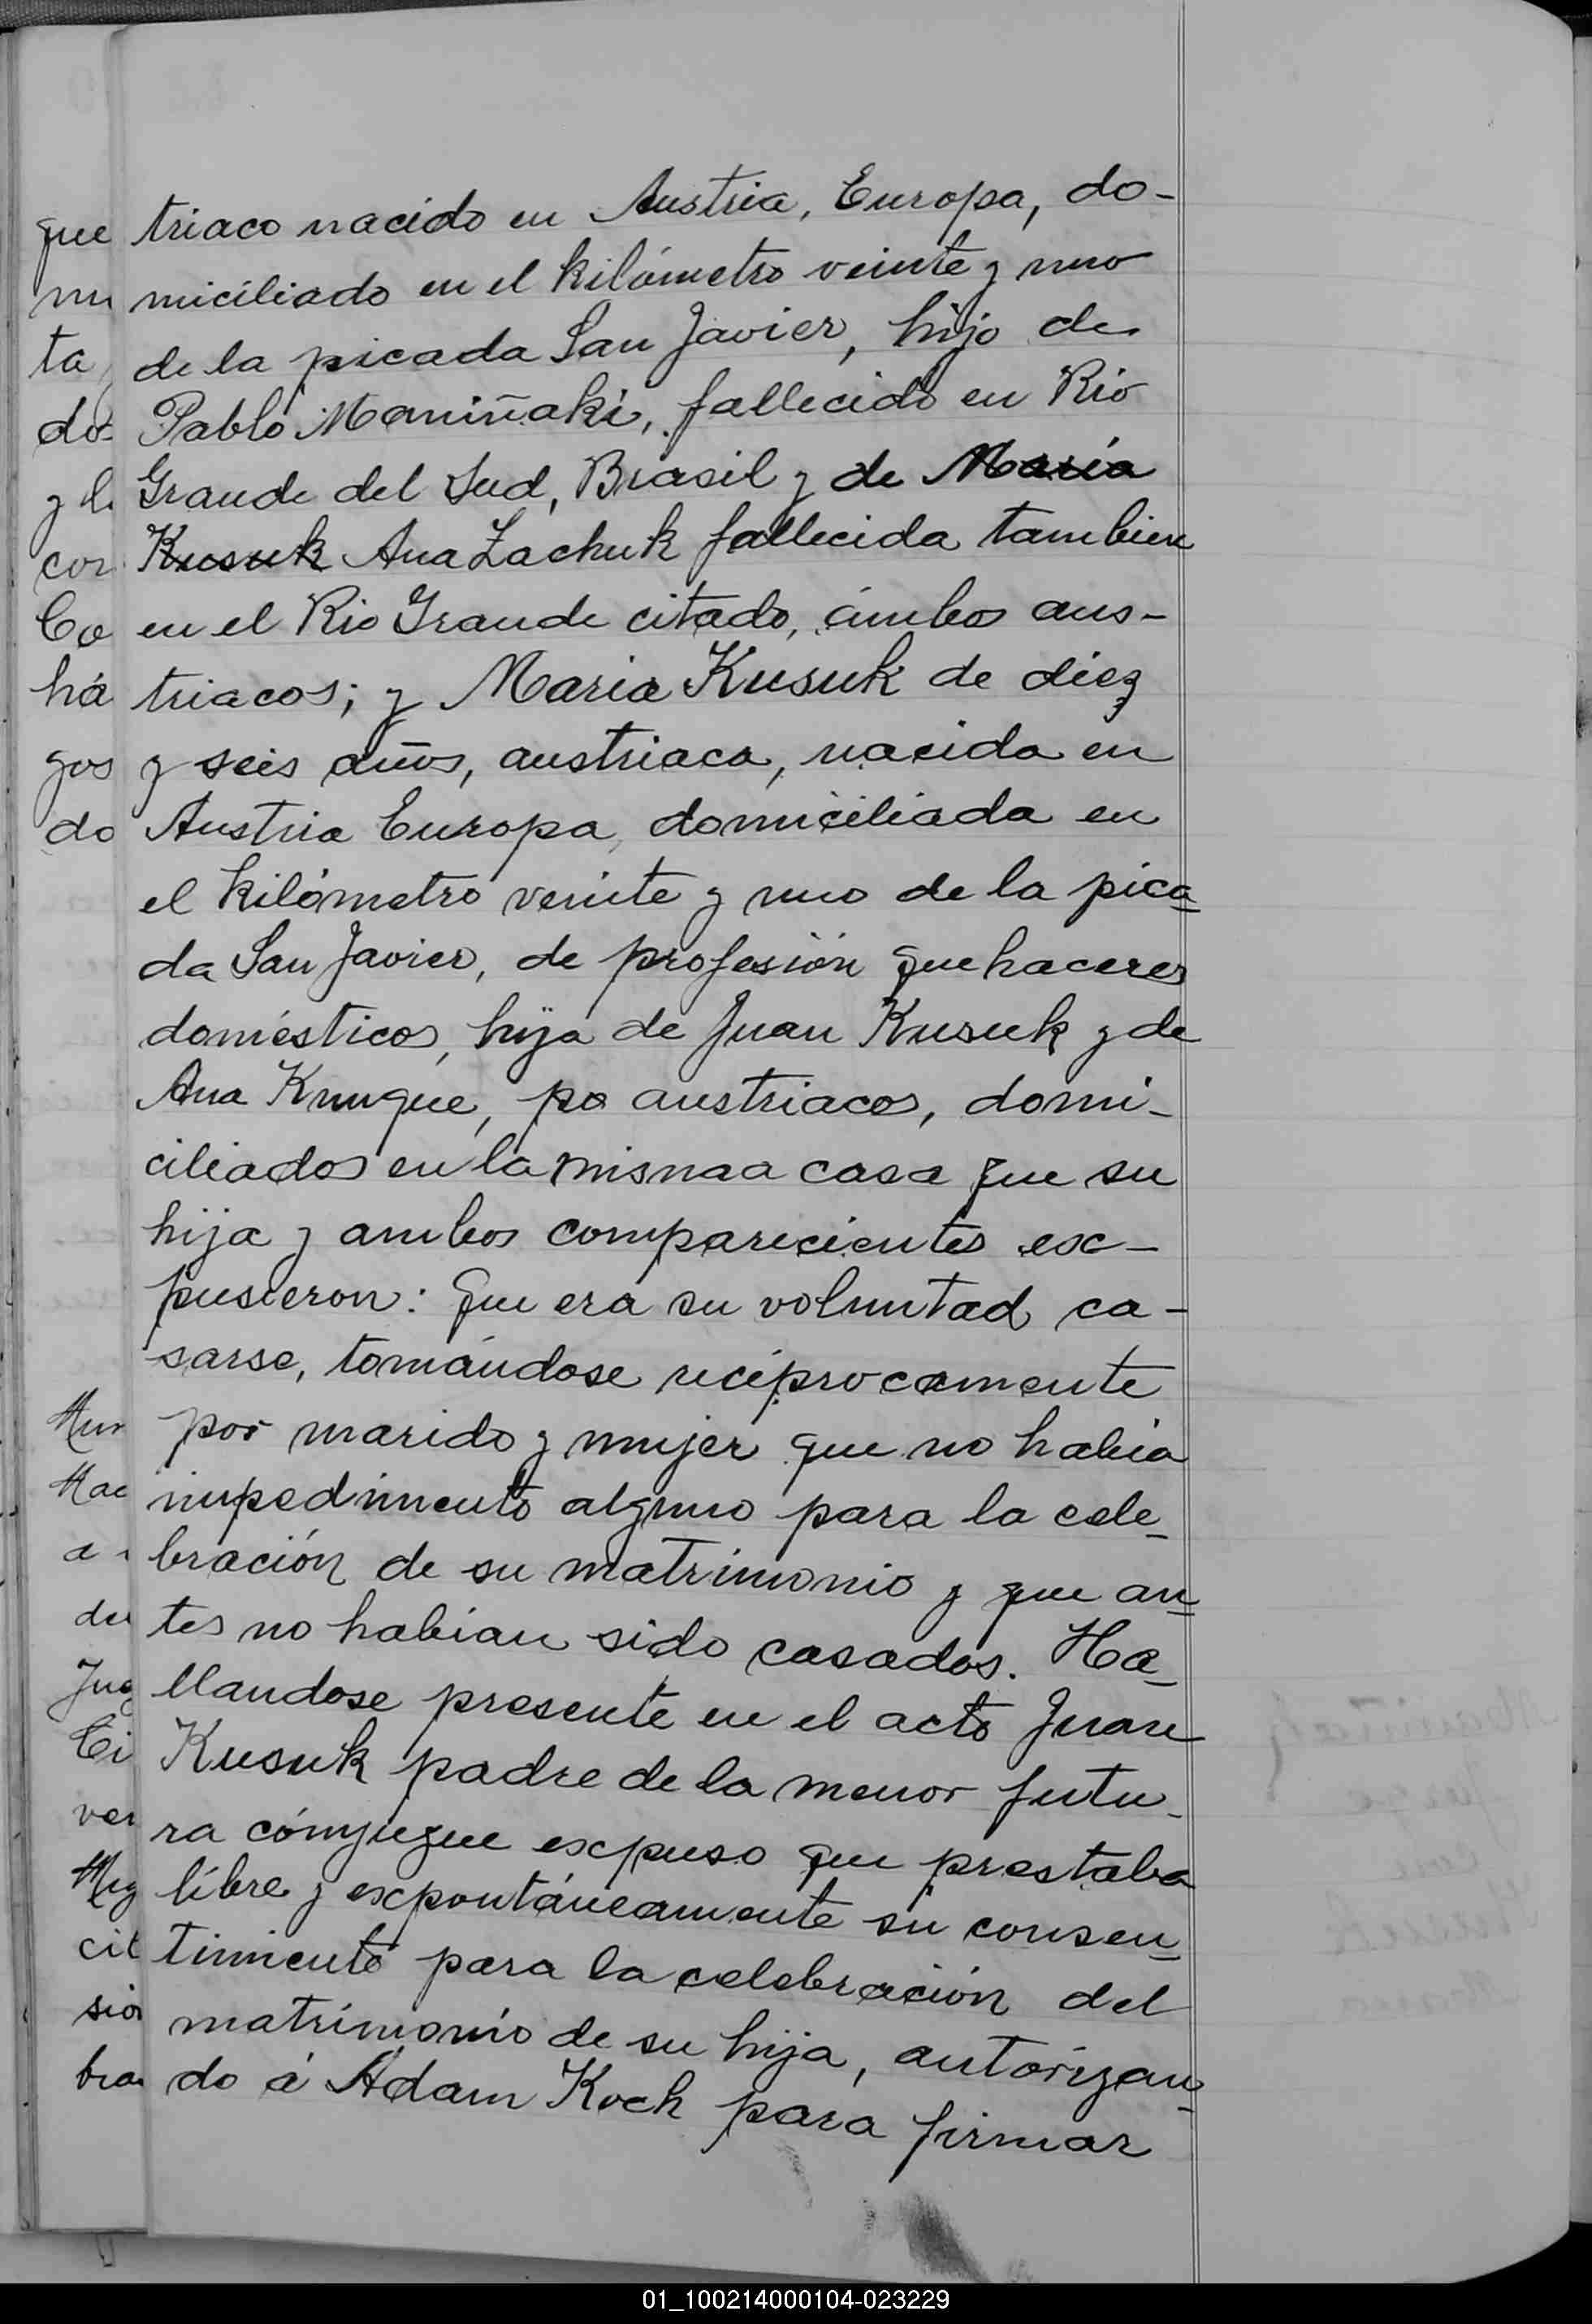 triaco nacido en Austria, Europa, do-
miciliado en el kilómetro veinte y uno
de la picada San Javier, hijo de
Pablo Maniñaki, fallecido en Rio
Grande del Sud, Brasil y de Maria
Kusuk Ana Zachuk fallecida tambien
en el Rio Grande citado, ámbos aus-
triacos; y Maria Kusuk de diez
y seis años, austriaca, nacida en
Austria Europa, domiciliada en
el kilómetro veinte y uno de la pica-
da San Javier, de profesión quehaceres
domésticos, hija de Juan Kusuk y de
Ana Knugue, po austriacos, domi-
ciliados en la mismaa casa que su
hija y ambos comparecientes ex-
pusieron: Que era su voluntad ca-
sarse, tomándose recíprocamente
por marido y mujer que no habia
impedimento alguno para la cele-
bración de su matrimonio y que an-
tes no habian sido casados. Ha-
llandose presente en el acto Juan
Kusuk padre de la menor futu-
ra cónyugue expuso que prestaba
libre y expontáneamente su consen-
timiento para la celebración del
matrimonio de su hija, autorizan-
do á Adam Koch para firmar
que
ta
dos
y l
cor
Co
há
gos
do
Mun
a
Jug
Ci
ver
cit
sion
bra
01_100214000104-023229